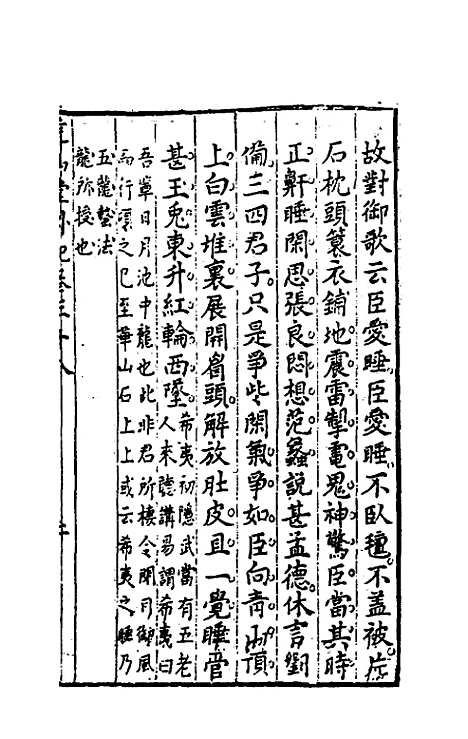 故對御歌云臣愛睡臣愛睡不臥氊不盖被片
石枕頭簑衣鋪地震雷掣電鬼神驚臣當其時
正鼾睡閑思張良悶想范蠡說甚孟德休言劉
備三四君子只是爭些閑氣爭如臣向青山頂
上白雲堆裏展開眉頭解放肚皮且一覺睡管
甚玉兔東升紅輪西墜希夷初隱武當有五老
人來聽講易謂希夷曰
吾輩日月池中龍也此非君所棲令閉目御風
而行頃之已至華山石上上或云希夷之睡乃
五龍蟄法
龍所授也
堯山堂外紀卷四十八